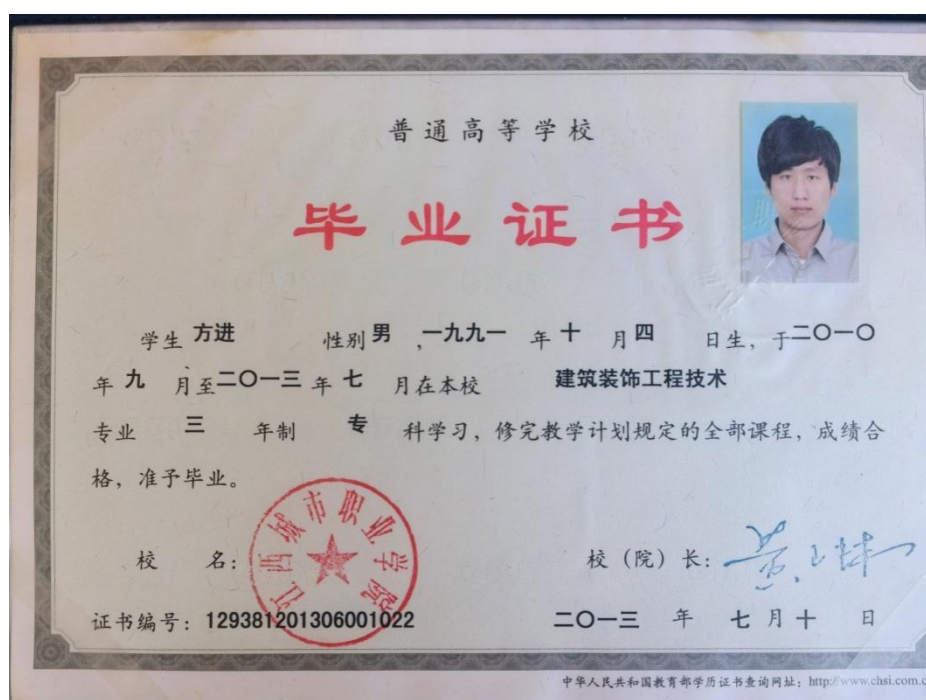 普通高等学校
毕业证书
学生 方进 性别 男 ,一九九一 年 十 月 四 日生，于二〇一〇
年 九 月至二〇一三 年 七 月在本校 建筑装饰工程技术
专业 三 年制 专 科学习，修完教学计划规定的全部课程，成绩合
格，准予毕业。
江西城市职业学院
校 名： 校（院）长：
证书编号：129381201306001022 二〇一三 年 七 月 十 日
中华人民共和国教育部学历证书查询网址：http://www.chsi.com.c